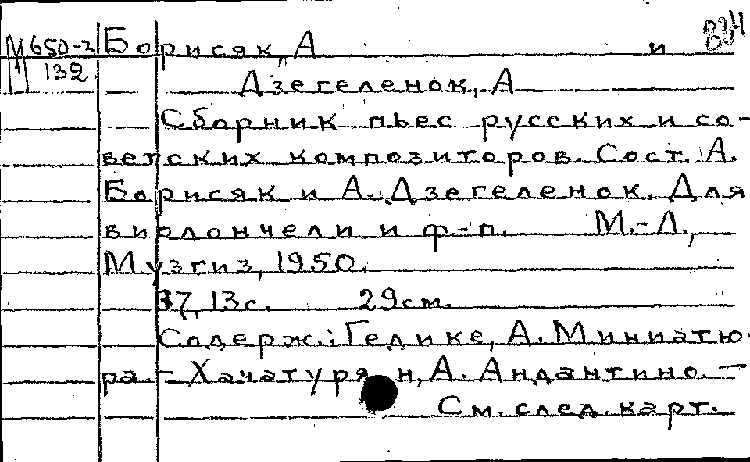 М650-2 Борисяк, А и
132 Дзегеленок, А
Сборник пьес русских и со-
ветских композиторов. Сост. А.
Борисяк и А. Дзегеленок. Для
виолончели и ф-п. М.-Л.,
Музгиз, 1950.
37, 13с. 29см.
Содерж.: Гедике, А. Миниатю-
ра. - Хачатурян, А. Андантино. -
См. след. карт.